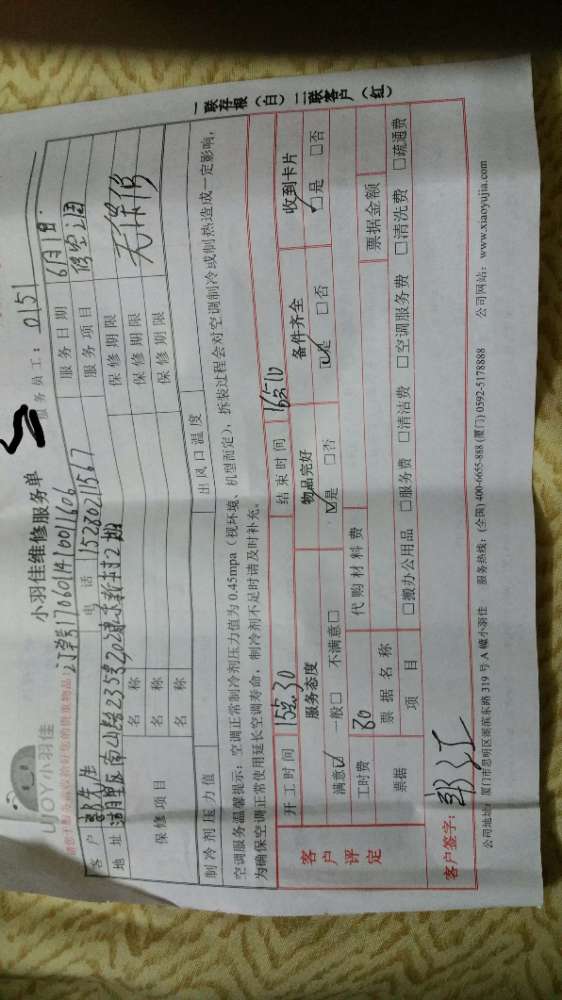 UJOY小羽佳
小羽佳维修服务单
服务员工：0151
订单号170601410011606
客户 郭先生 电话 15280211567 服务日期 6月1日.
地址 湖里区南山路235号20 东新村2楼 服务项目 修空调
保修项目 名称 保修期限 无保修
名称 保修期限
名称 保修期限
制冷剂压力值 出风口温度
空调服务温馨提示：空调正常制冷剂压力值为 0.45mpa（视环境、机型而定），拆装过程会对空调制冷或制热造成一定影响，
为确保空调正常使用延长空调寿命，制冷剂不足时请及时补充。
客户评定
开工时间 15点30 结束时间 16点10
服务态度 物品完好 备件齐全 收到卡片
满意☑ 一般□ 不满意□ ☑是 □否 ☑是 □否 ☑是 □否
工时费 80 代购材料费
票据 票据名称 票据金额
项目 □搬办公用品 □服务费 □清洁费 □空调服务费 □清洗费 □疏通费
客户签字：郭江
公司地址：厦门市思明区溪滨东路 319 号 A 幢小羽佳 服务热线：(全国) 400-6655-888 (厦门) 0592-5178888 公司网站：www.xiaoyujia.com
一联存根（白）二联客户（红）